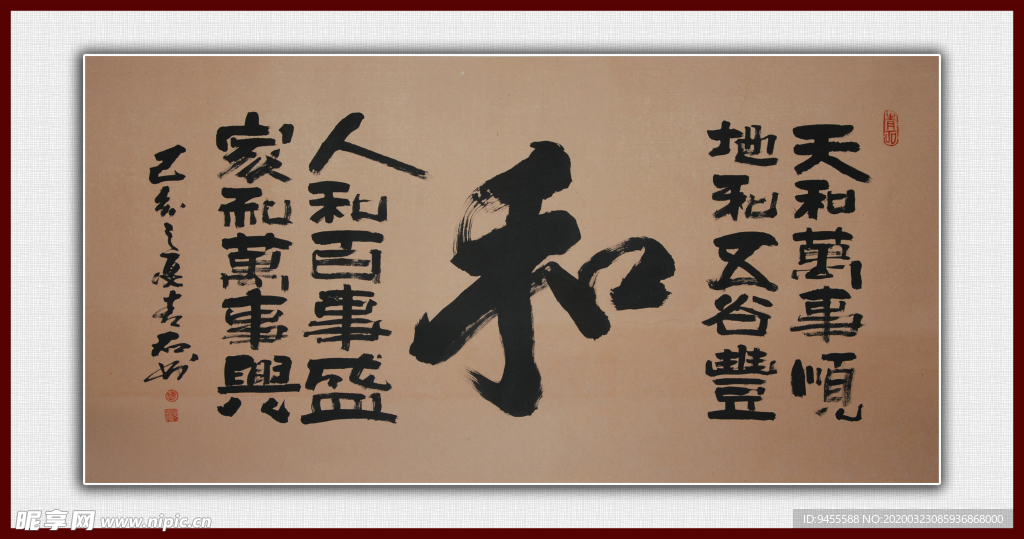 天和萬事順
地和五谷豐
和
人和百事盛
家和萬事興
己亥之夏青石书
昵享网 www.nipic.cn
ID:9455588 NO:20200323085936868000